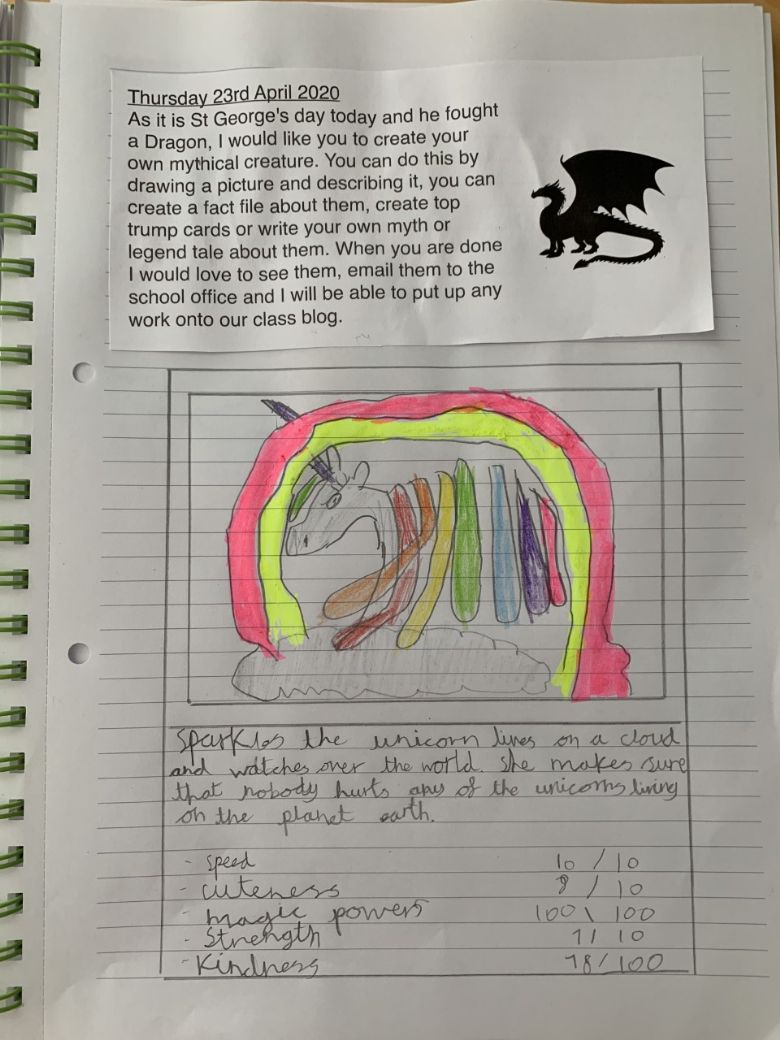 Thursday 23rd April 2020
As it is St George's day today and he fought
a Dragon, I would like you to create your
own mythical creature. You can do this by
drawing a picture and describing it, you can
create a fact file about them, create top
trump cards or write your own myth or
legend tale about them. When you are done
I would love to see them, email them to the
school office and I will be able to put up any
work onto our class blog.
Sparkles the unicorn lives on a cloud
and watches over the world. She makes sure
that nobody hurts any of the unicorns living
on the planet earth.
- Speed 10 / 10
- cuteness 8 / 10
- magic powers 100 \ 100
- Strength 7/ 10
- Kindness 98/100